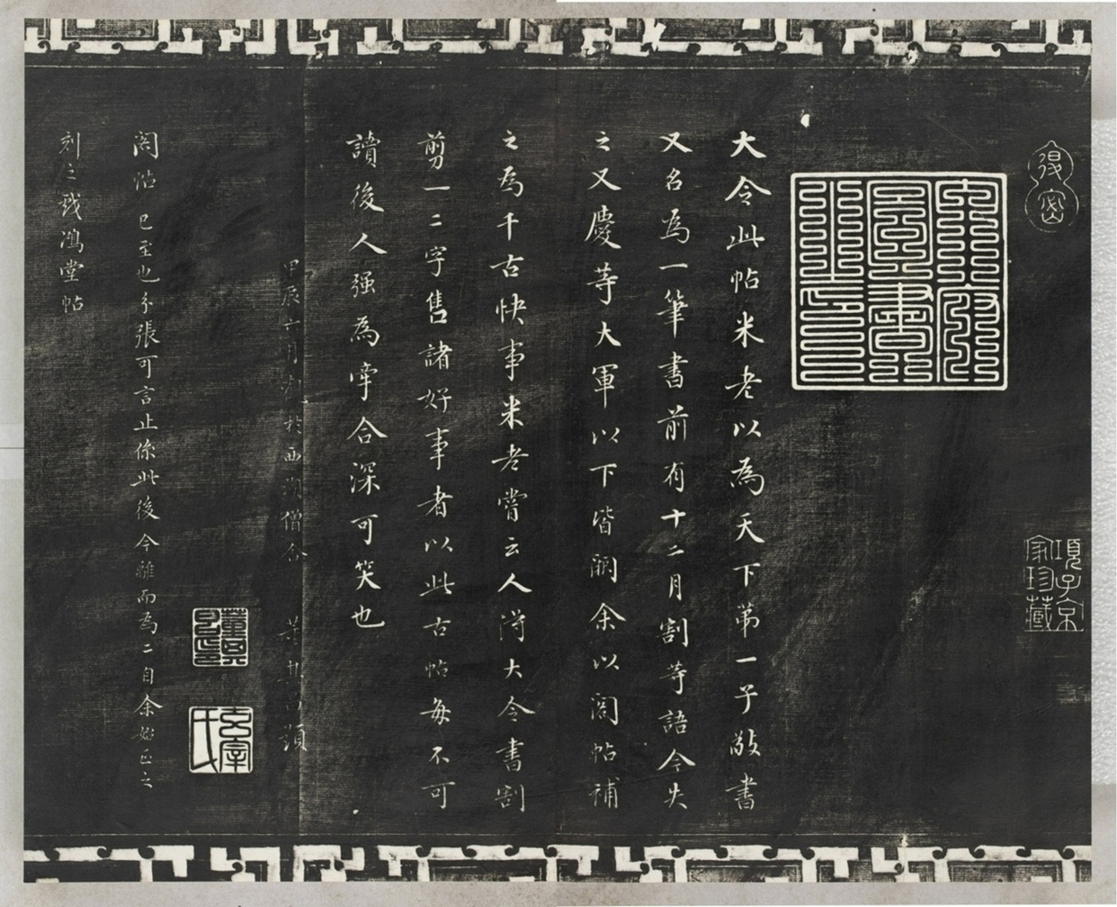 退密
項子京家珍藏
大令此帖米老以為天下第一子敬書
又名為一筆書前有十二月割等語今失
之又慶等大軍以下皆闕余以閣帖補
之為千古快事米老嘗云人得大令書割
剪一二字售諸好事者以此古帖每不可
讀後人强為牽合深可笑也
甲辰六月觀於西湖僧舍 董其昌題
董其昌印
玄宰氏
閣帖已至也分張可言止係此後今離而為二自余始正之
刻之戲鴻堂帖